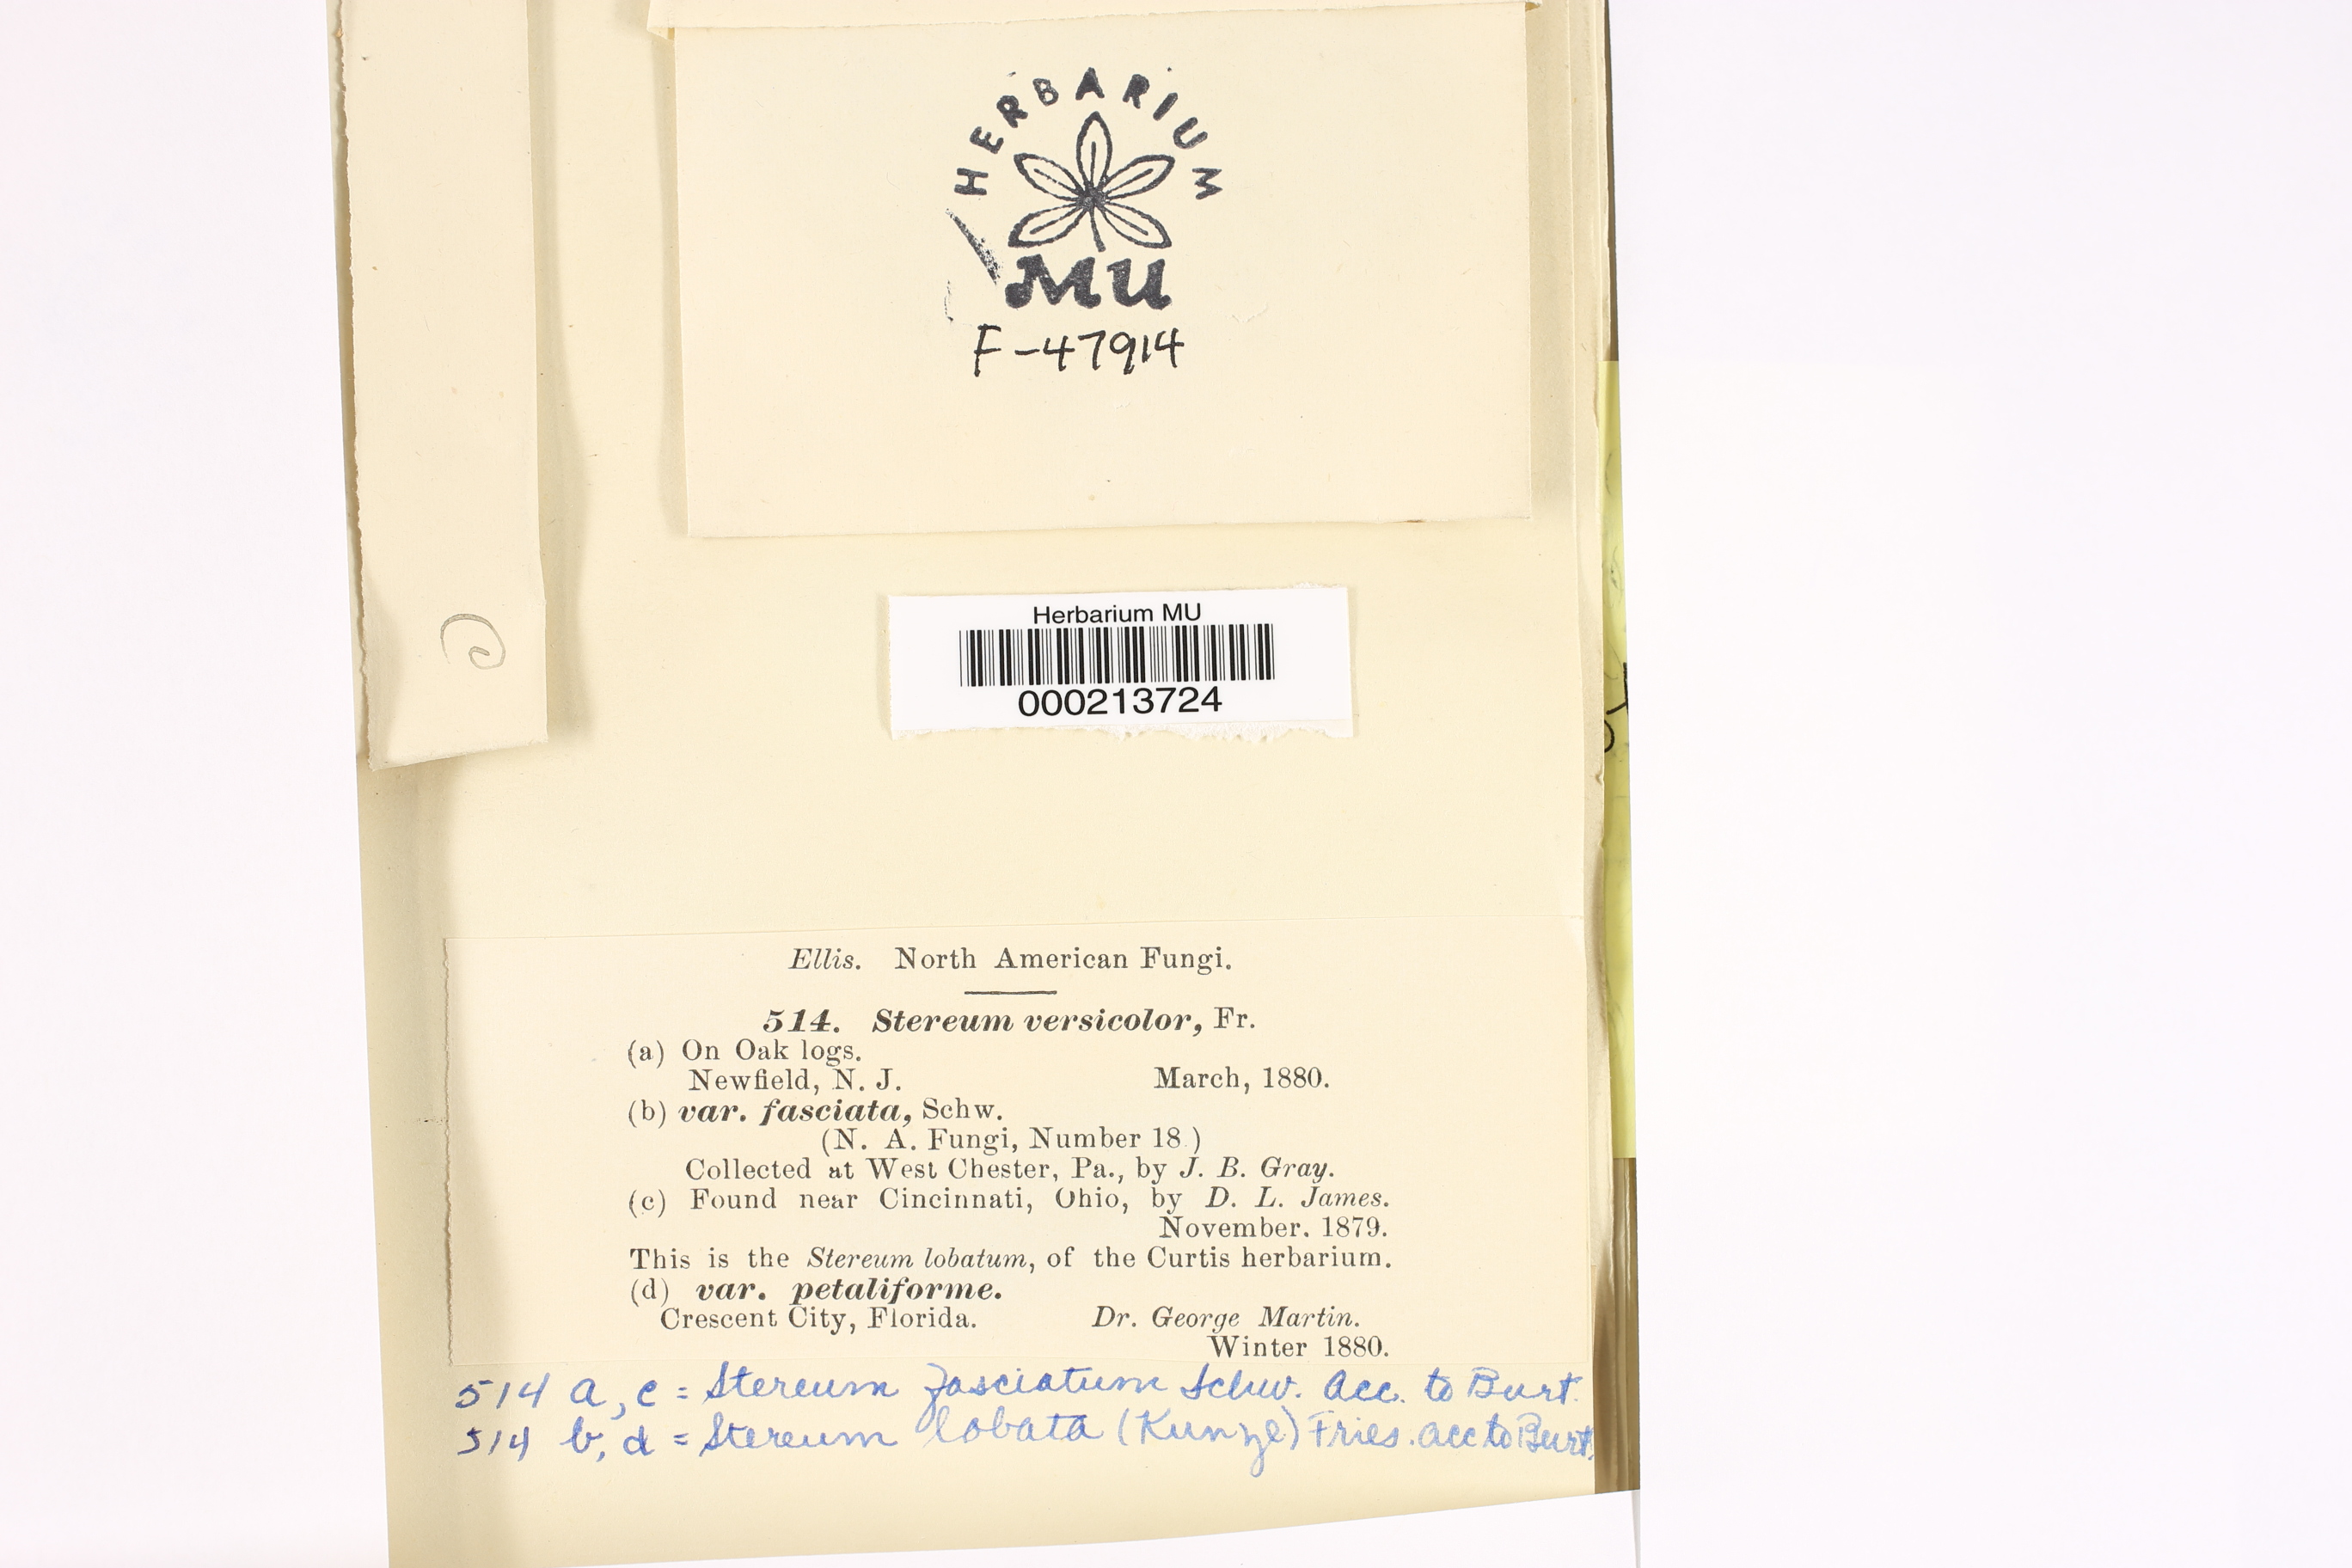 HERBARIUM
MU
F-47914
Herbarium MU
000213724
Ellis. North American Fungi.
514. Stereum versicolor, Fr.
(a) On Oak logs.
Newfield, N. J. March, 1880.
(b) var. fasciata, Schw.
(N. A. Fungi, Number 18.)
Collected at West Chester, Pa., by J. B. Gray.
(c) Found near Cincinnati, Ohio, by D. L. James.
November. 1879.
This is the Stereum lobatum, of the Curtis herbarium.
(d) var. petaliforme.
Crescent City, Florida. Dr. George Martin.
Winter 1880.
514 a, c = Stereum fasciatum Schw. Acc. to Burt.
514 b, d = Stereum lobata (Kunze) Fries. acc to Burt.